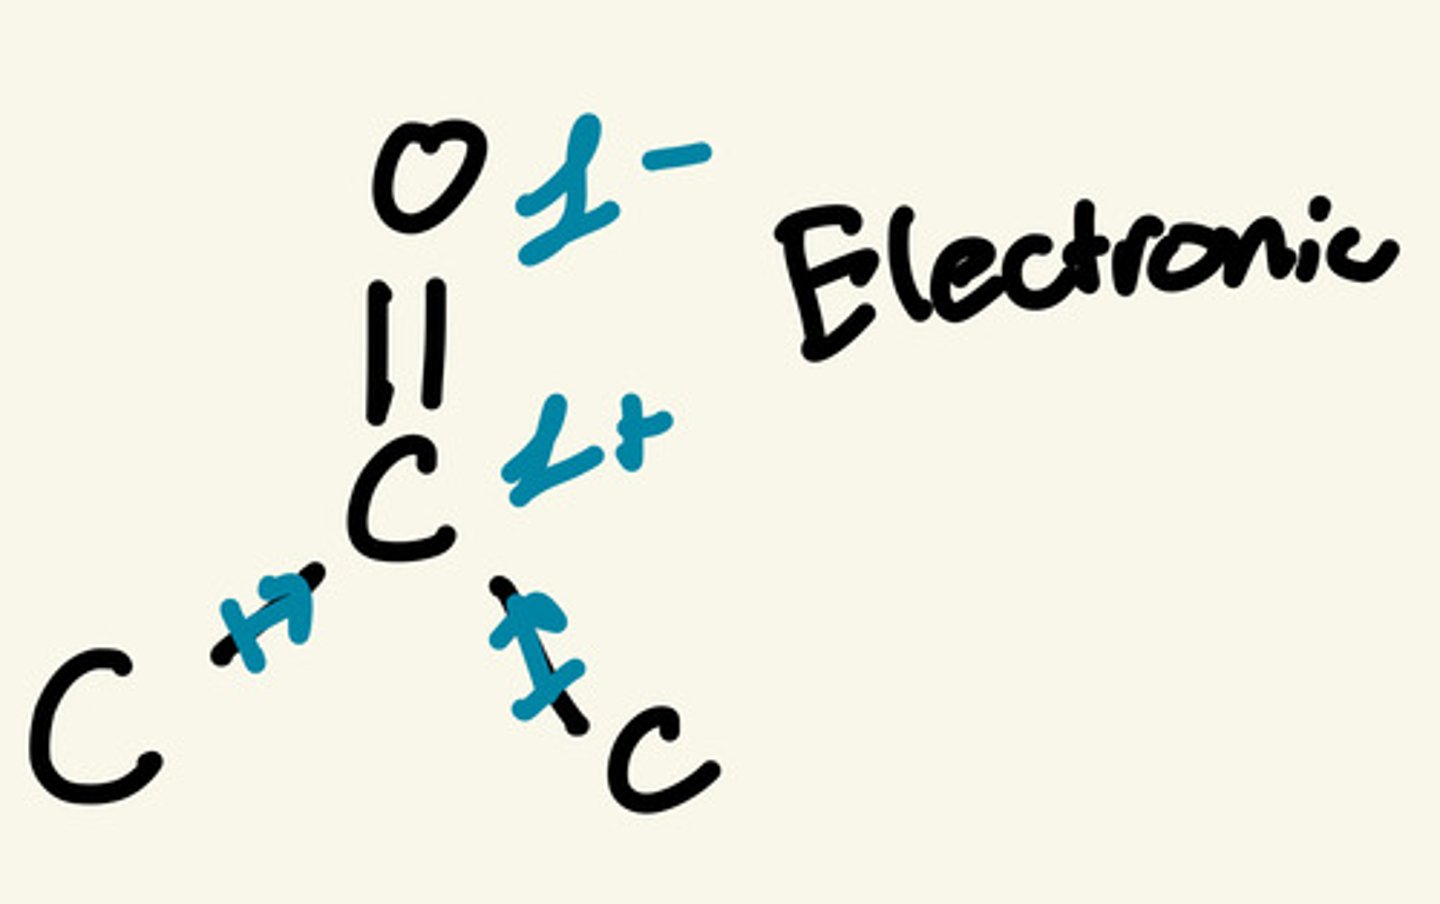 O
Electronic
C
C
C